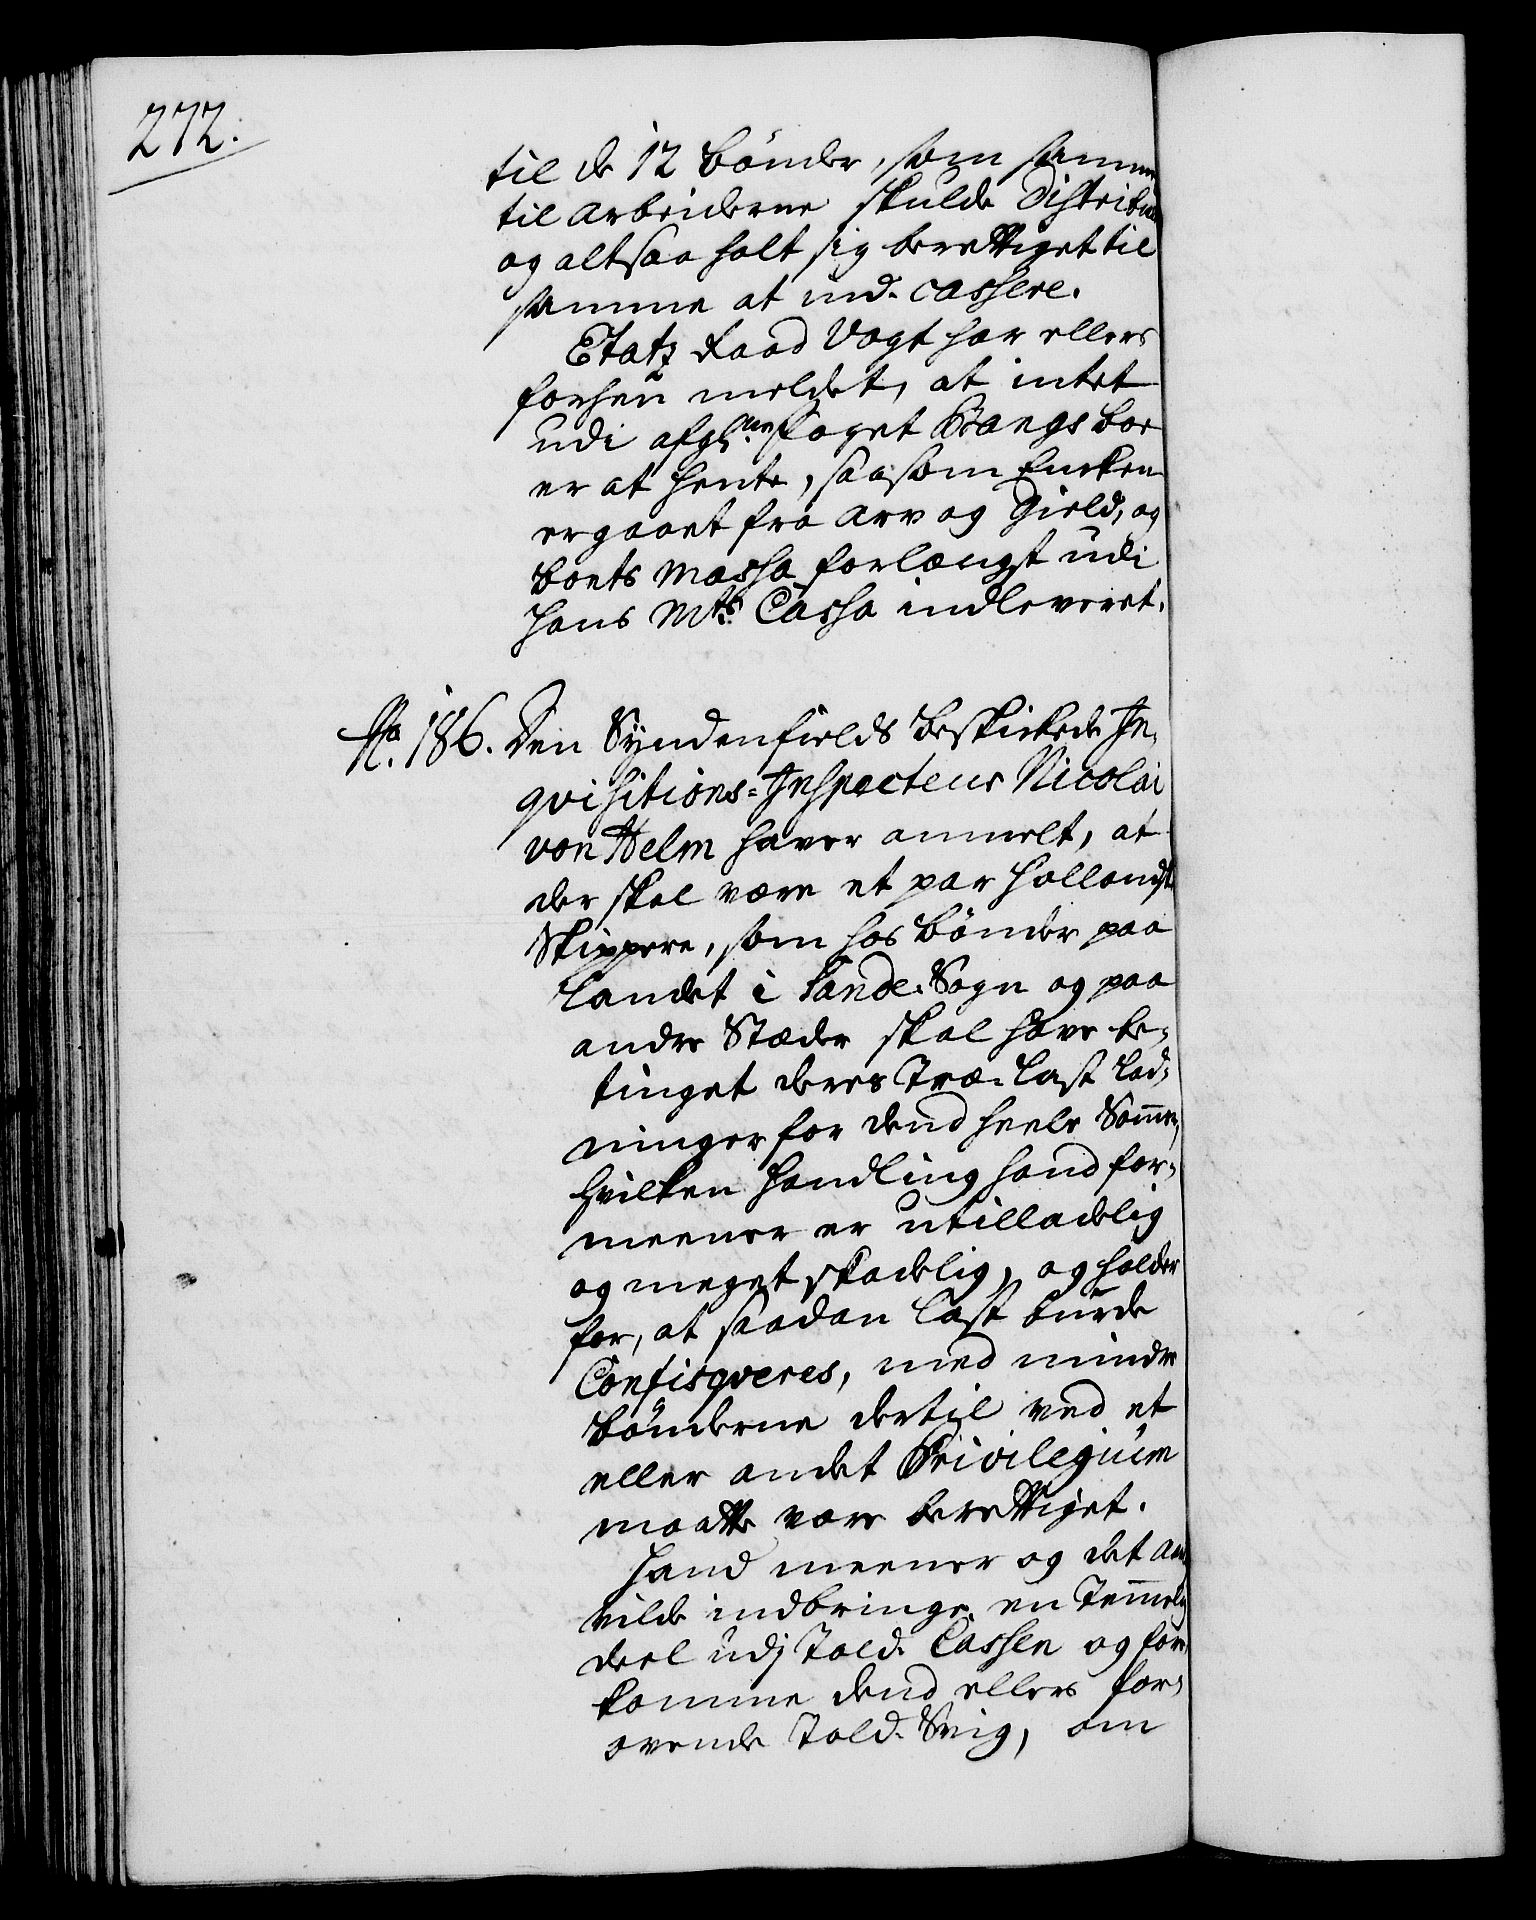 272.
til de 12 bönder, som samme
til arbeiderne skulde Distribue
og altsaa holt sig berettiget til
samme at ind-cassere.
Etatz Raad Vogt har ellers
forhen meldet, at intet
udi afg.ne Foget Bangs boe
er at hente, saasom Encken
er gaaet fra arv og Gield, og
boets Massa forlængst udi
Hans Mts Cassa indleveret.
No 186. Den Syndenfields beskickede In-
qvisitions-Inspecteur Nicolai
von Helm haver anmelt, at
der skal være et par hollandst
Skippere, som hos bönder paa
landet i Sande-Sogn og paa
andre Stæder skal have be-
tinget deres Træ-last lad-
ninger for dend heele Somer,
hvilken handling hand for-
meener er utilladelig
og meget skadelig, og holder
for, at saadan last burde
Confisqveres, med mindre
bönderne dertil ved et
eller andet Privilegium
maatte være berettiget.
Hand meener og det
vilde indbringe en Temelig
deel udj Told-Cassen og fore-
komme dend ellers for-
ovende Told-Svig, om